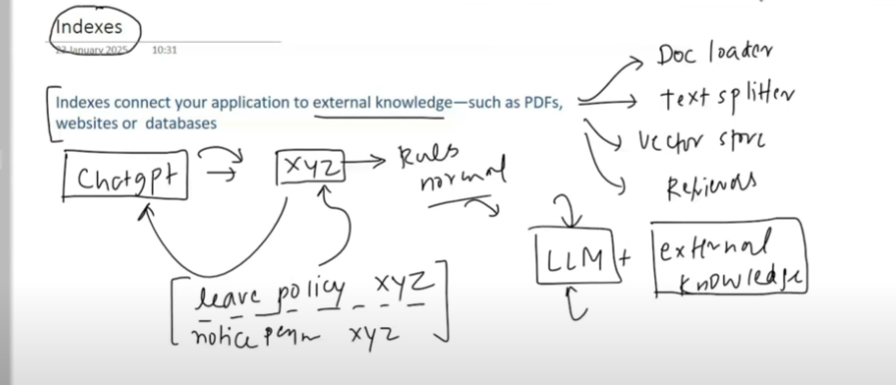 Indexes
23 January 2025 10:31
Indexes connect your application to external knowledge—such as PDFs,
websites or databases
Doc loader
Text splitter
Vector store
Chatgpt
XYZ
Rules
normal
LLM + external
knowledge
leave policy XYZ
notice XYZ